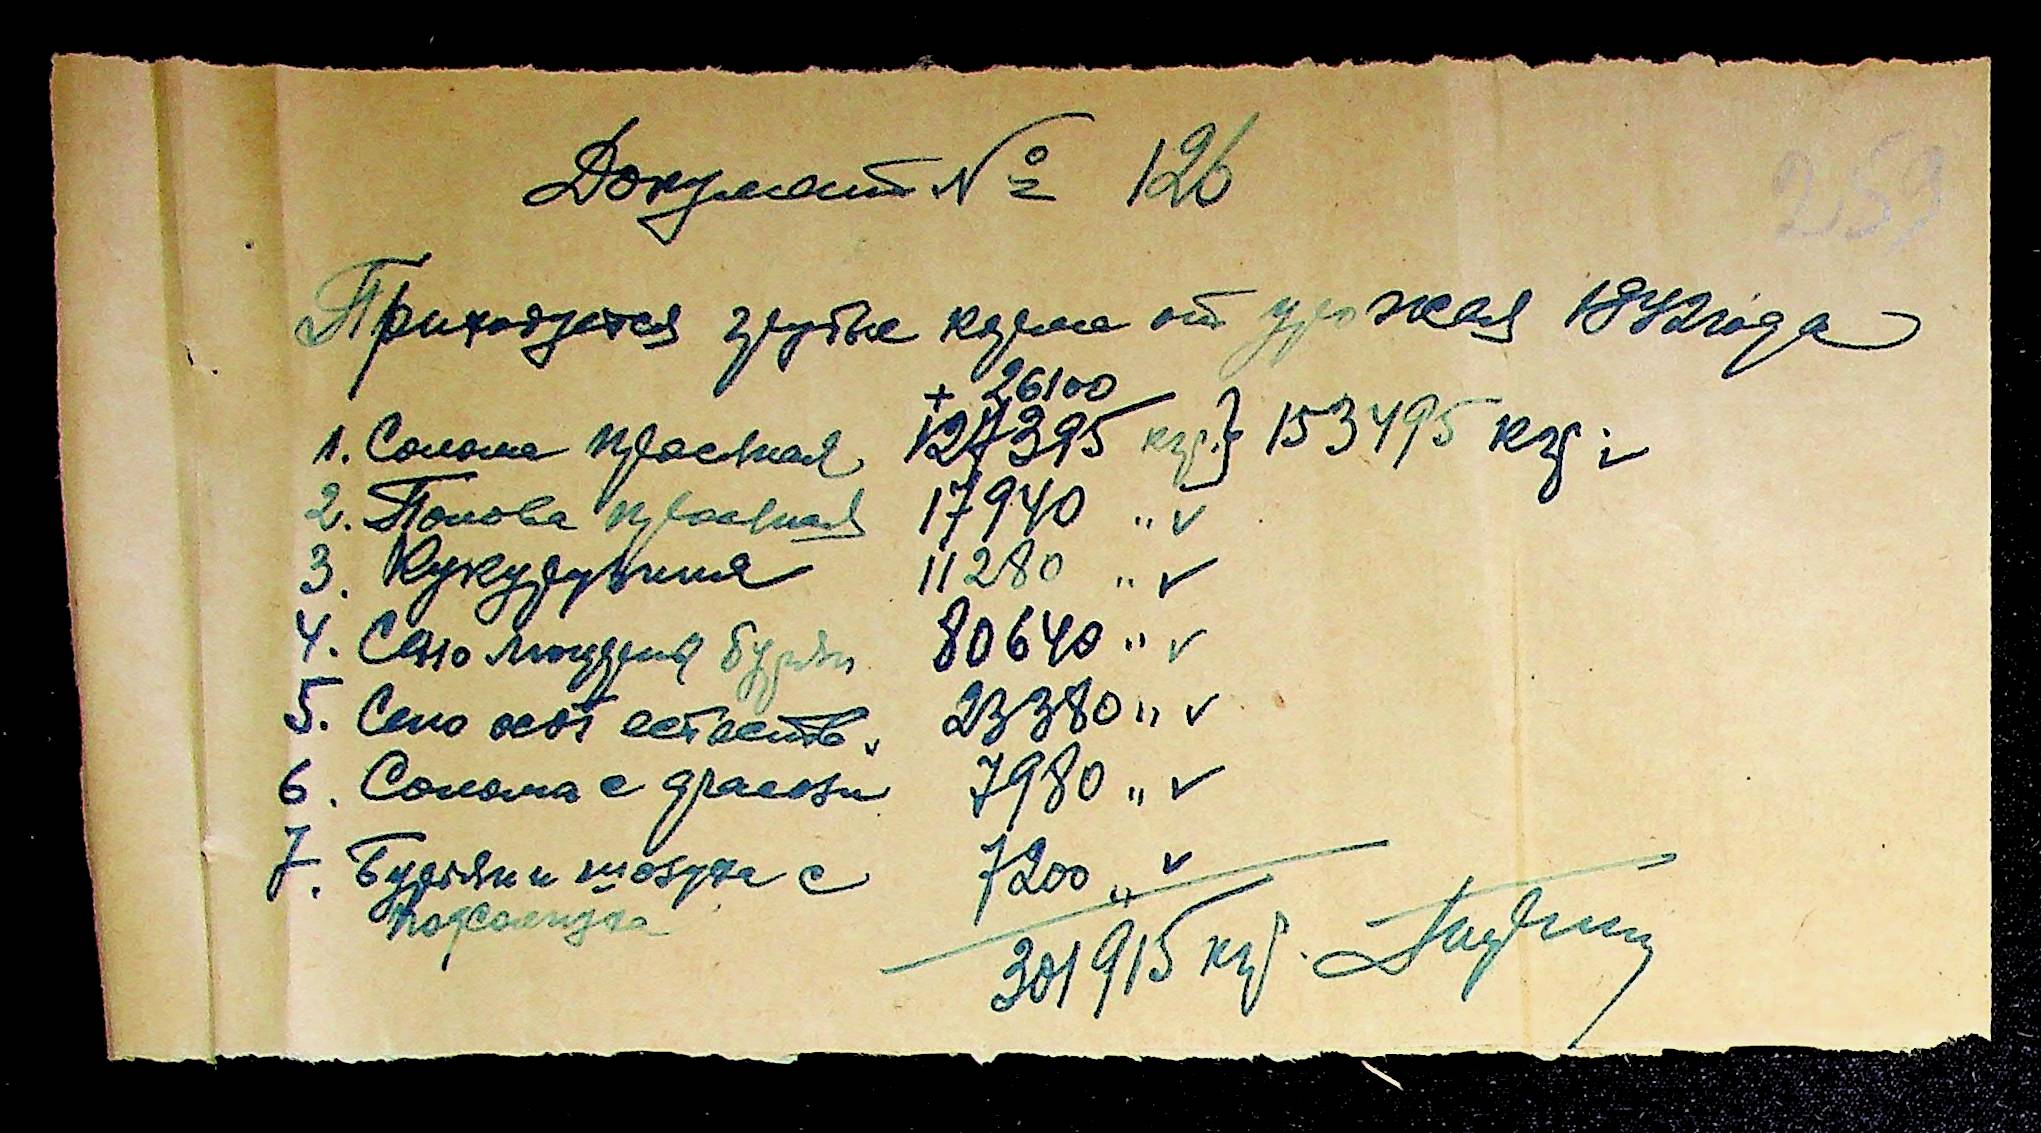 Документ № 126
259
Приходуется грубые корма от урожая 1942 года
+ 26100
1. Солома просяная 127395 кгр. } 153495 кгр.
2. Полова просяная 17940 " v
3. Кукурузиння 11280 " v
4. Сено люцерна бурян 80640 " v
5. Сено естеств. 23380 " v
6. Солома с 7980 " v
7. Буряни с 7200 " v
подсолнуха
301915 кгр.